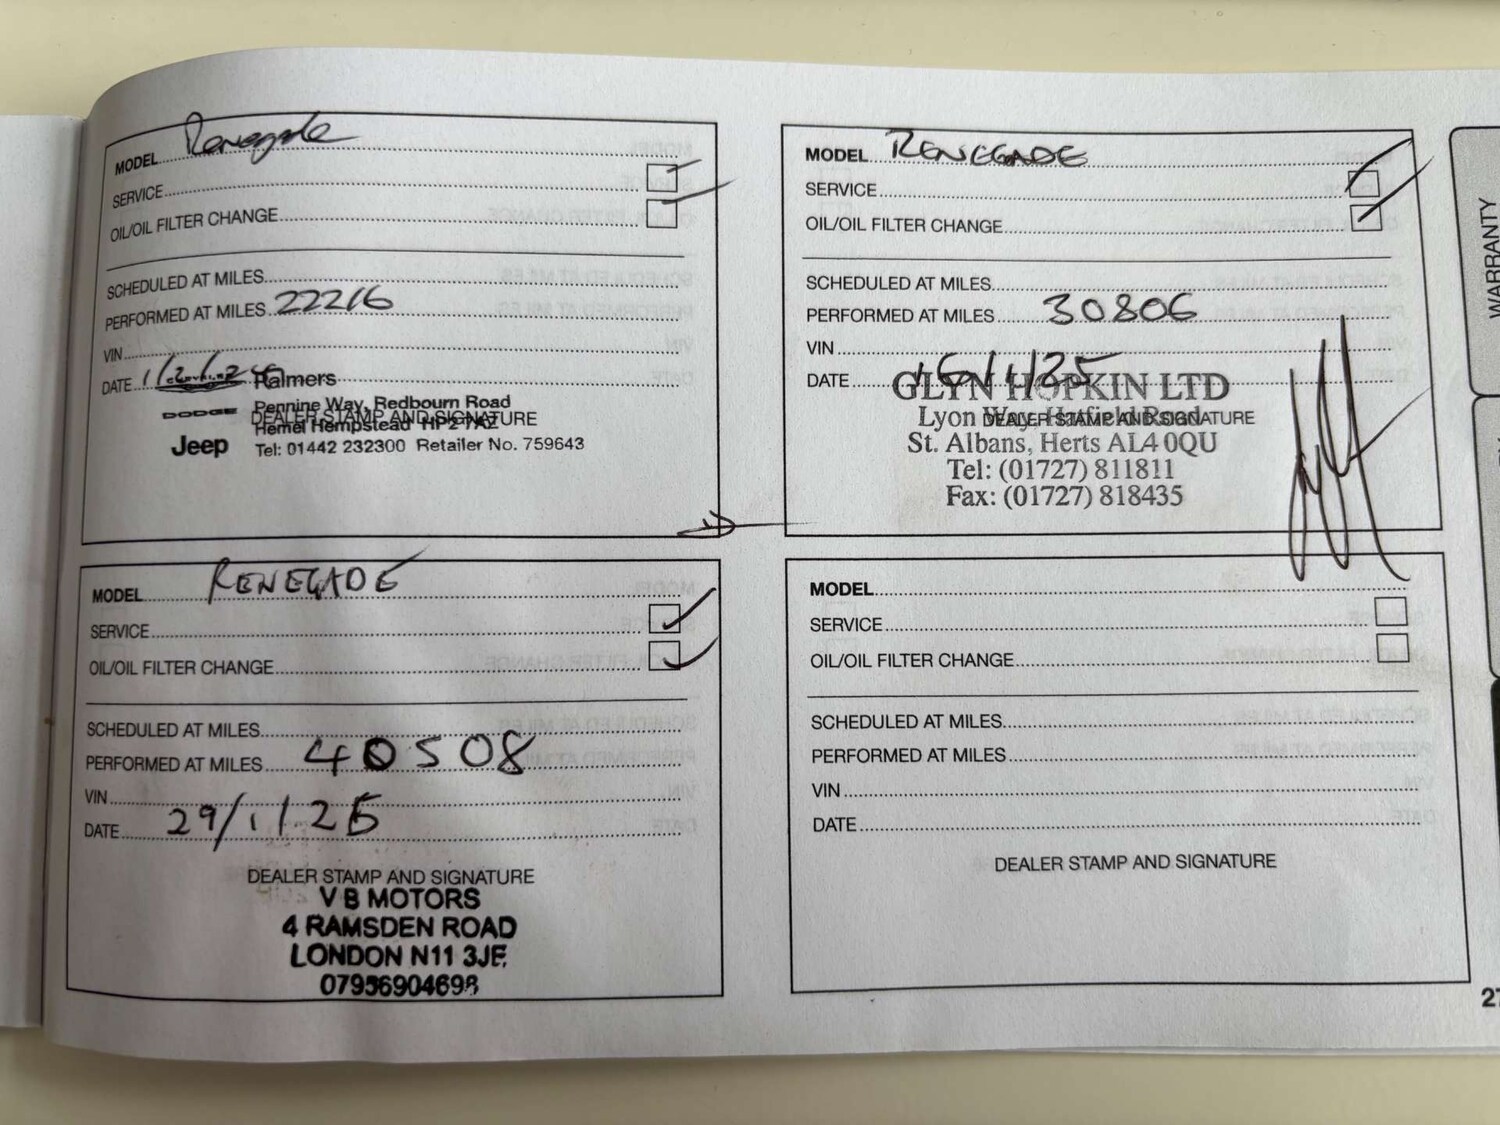 MODEL Renegade
SERVICE
OIL/OIL FILTER CHANGE
SCHEDULED AT MILES
PERFORMED AT MILES 22216
VIN
DATE
Palmers
DODGE Pennine Way, Redbourn Road
DEALER STAMP AND SIGNATURE
Hemel Hempstead HP2 7AZ
Jeep Tel: 01442 232300 Retailer No. 759643
MODEL RENEGADE
SERVICE
OIL/OIL FILTER CHANGE
SCHEDULED AT MILES
PERFORMED AT MILES 30806
VIN
DATE
GLYN HOPKIN LTD
Lyon Way, Hatfield Road
DEALER STAMP AND SIGNATURE
St. Albans, Herts AL4 0QU
Tel: (01727) 811811
Fax: (01727) 818435
MODEL RENEGADE
SERVICE
OIL/OIL FILTER CHANGE
SCHEDULED AT MILES
PERFORMED AT MILES 40508
VIN
DATE 29/11.25
DEALER STAMP AND SIGNATURE
V B MOTORS
4 RAMSDEN ROAD
LONDON N11 3JE
07956904698
MODEL
SERVICE
OIL/OIL FILTER CHANGE
SCHEDULED AT MILES
PERFORMED AT MILES
VIN
DATE
DEALER STAMP AND SIGNATURE
WARRANTY
27